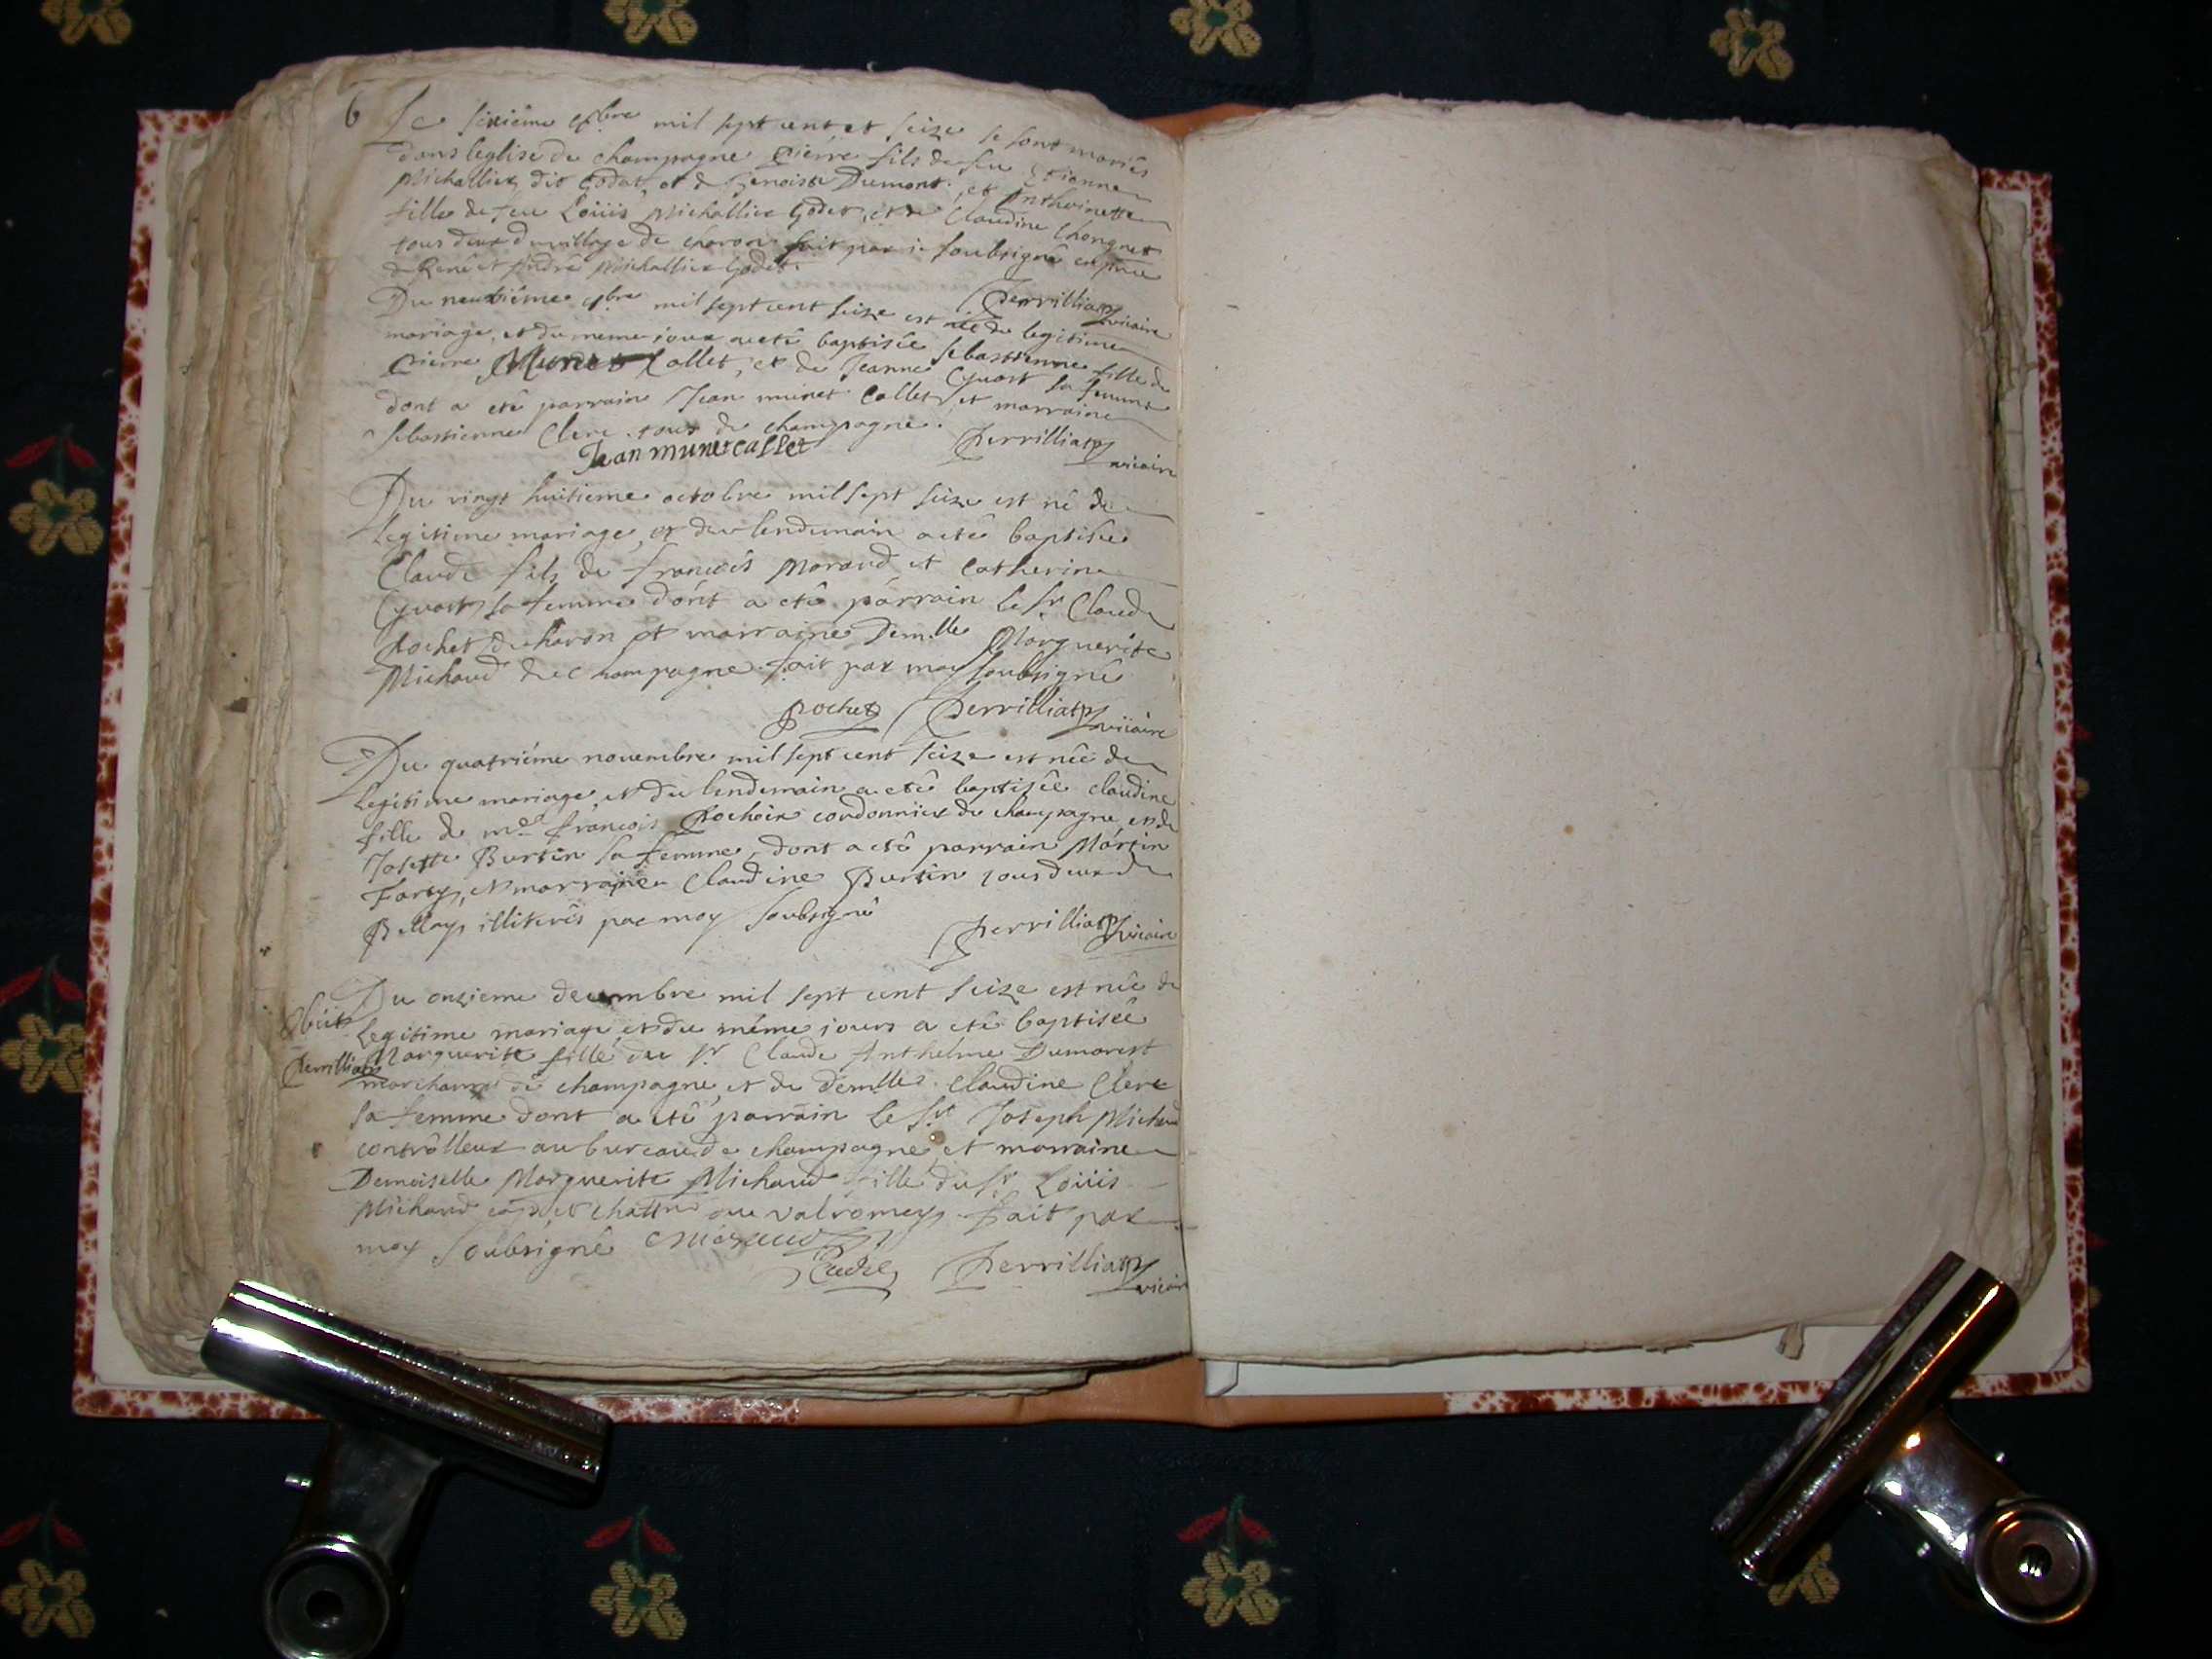 6 Le sixiême 8bre mil sept cent et seize se sont mariés
dans leglise de champagne pierre fils de feu Etienne
Michallier dit Godet, et de Benoiste Dumont. et Anthoinette
fille de feu Loüis Michallier Godet, et de Claudine
tous deux du village de charon fait par je soubsigné
de Renê et Andrê Michallier Godet.
Perrilliat vicaire
Du neufviême 8bre mil sept cent seize est née de legitime
mariage, et du meme jour a etê baptisée Sebastienne fille de
pierre Munet Callet, et de Jeanne Guast sa femme
dont a etê parrain Jean munet Callet, et marraine
sebastienne Clerc. tous de champagne.
Perrilliat vicaire
Jean munet callet
Du vingt huitieme octobre mil sept seize est nê de
Legitime mariage, et du lendemain a etê baptisée
Claude fils de francois Morand et Catherine
Guast sa femme dont a etê parrain Le sr Claude
Rochet du charon et marraine demlle Marguerite
Michaud de Champagne. fait par moy soubsignê
Rochet Perrilliat vicaire
Du quatriéme novembre mil sept cent seize est née de
Legitime mariage, et du lendemain a etê baptisêe claudine
fille de francois cordonnier de champagne, et de
Josette Burtin sa femme, dont a etê parrain Martin
et marraine Claudine Burtin tous deux de
Bellay illiterês par moy soubsignê
Perrilliat vicaire
Du onzieme decembre mil sept cent seize est née de
obiit Legitime mariage et du même jours a etê baptisêe
Perrilliat Marguerite fille du sr Claude Anthelme Dumarest
marchand de champagne, et de demlle. claudine Clerc
sa femme dont a etê parrain Le sr Joseph Michaud
contrôlleur au bureau de champagne, et marraine
Demoiselle Marguerite Michaud fille du sr Loüis
Michaud et du valromey. fait par
moy soubsignê
Perrilliat vicaire